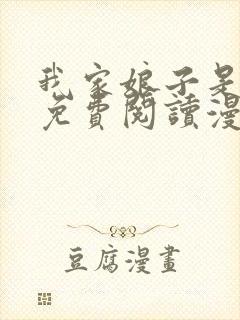 我家娘子是
免費閱讀漫
豆腐漫畫